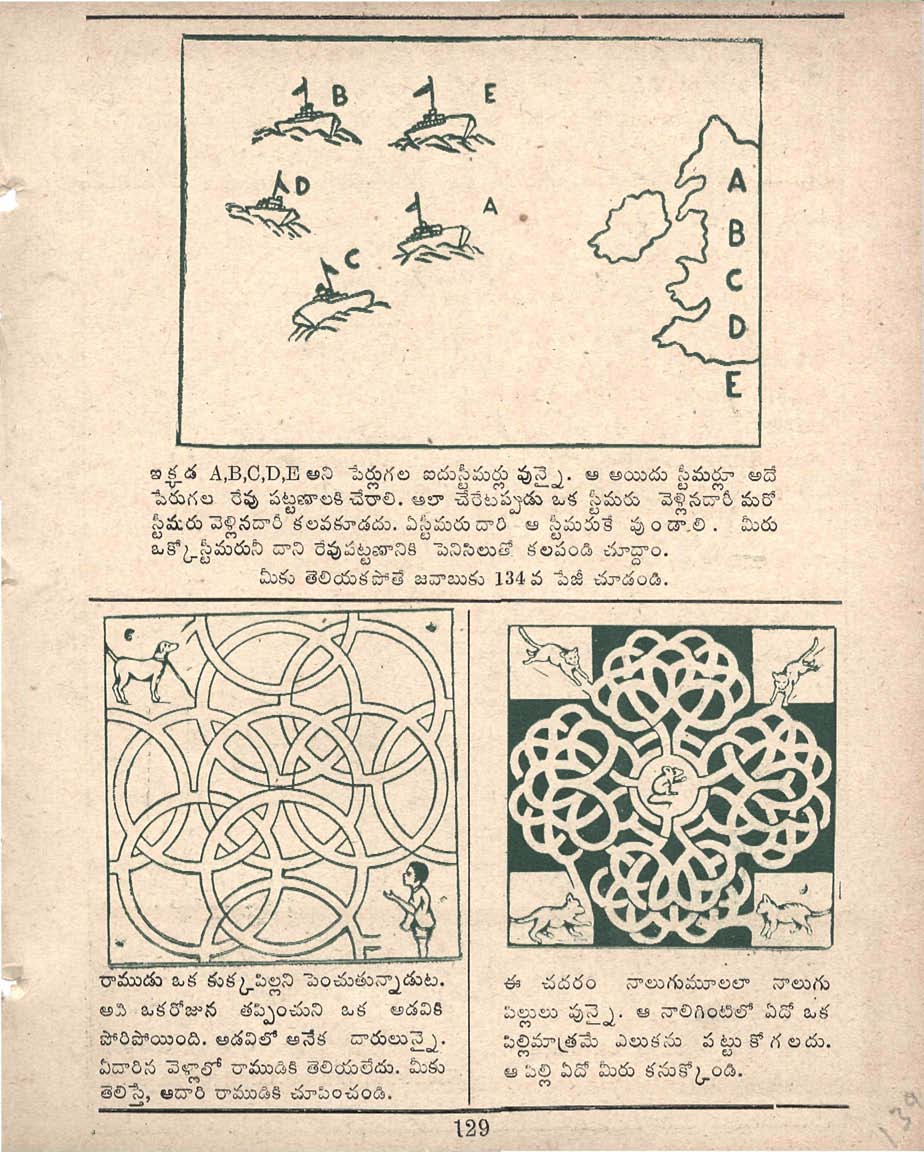 B
E
D
A
C
A
B
C
D
E
ఇక్కడ A,B,C,D,E అని పేర్లుగల ఐదుస్టీమర్లు వున్నై. ఆ అయిదు స్టీమర్లూ అదే
పేరుగల రేవు పట్టణాలకి చేరాలి. అలా చేరేటప్పుడు ఒక స్టీమరు వెళ్లినదారీ మరో
స్టీమరు వెళ్లినదారీ కలవకూడదు. ఏస్టీమరు దారి ఆ స్టీమరుకే వుండాలి. మీరు
ఒక్కోస్టీమరునీ దాని రేవుపట్టణానికి పెనిసిలుతో కలపండి చూద్దాం.
మీకు తెలియకపోతే జవాబుకు 134 వ పేజీ చూడండి.
రాముడు ఒక కుక్కపిల్లని పెంచుతున్నాడుట.
అవి ఒకరోజున తప్పించుని ఒక అడవికి
పోరిపోయింది. అడవిలో అనేక దారులున్నై.
ఏదారిన వెళ్లాలో రాముడికి తెలియలేదు. మీకు
తెలిస్తే, ఆదారి రాముడికి చూపించండి.
ఈ చదరం నాలుగుమూలలా నాలుగు
పిల్లులు వున్నై. ఆ నాలిగింటిలో ఏదో ఒక
పిల్లిమాత్రమే ఎలుకను పట్టుకోగలదు.
ఆ పిల్లి ఏదో మీరు కనుక్కోండి.
129
139